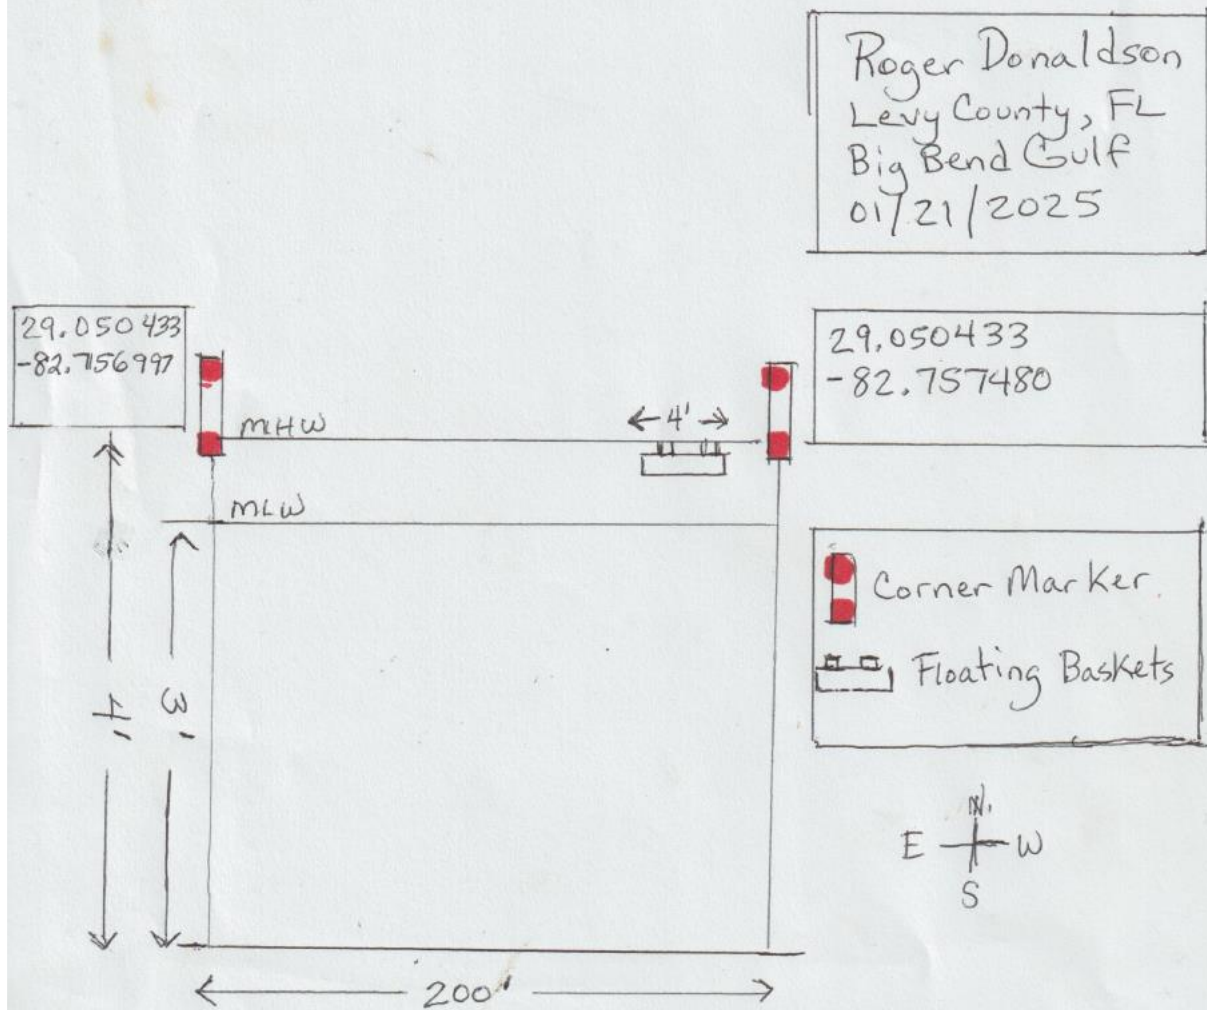 Roger Donaldson
Levy County, FL
Big Bend Gulf
01/21/2025
29.050433
-82.7156997
29.050433
-82.757480
MHW
4'
MLW
Corner Marker
Floating Baskets
4'
3'
N.
E
W
S
200'